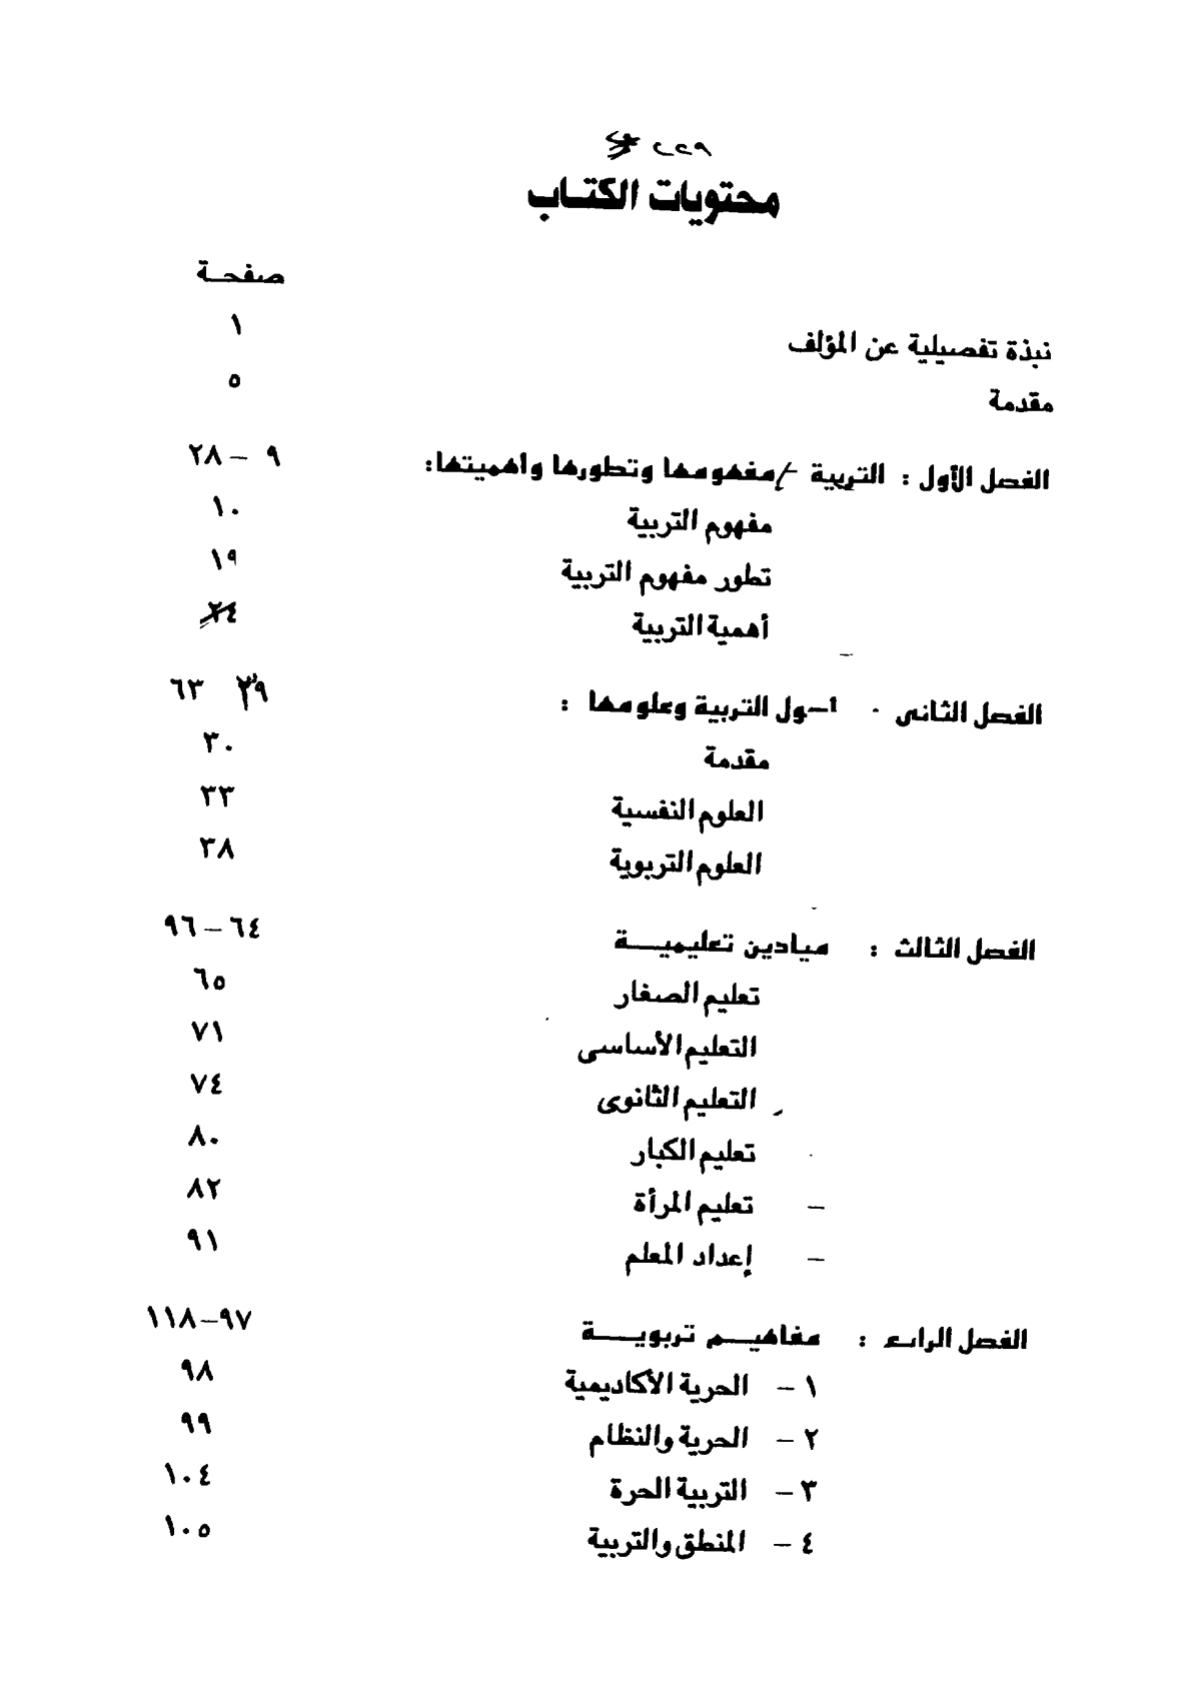 محتويات الكتـاب
صفحـة
نبذة تفصيلية عن المؤلف ١
مقدمة ٥
الفصل الأول : التربية - مفهومها وتطورها وأهميتها: ٩ - ٢٨
مفهوم التربية ١٠
تطور مفهوم التربية ١٩
أهمية التربية ٢٤
الفصل الثانى أصول التربية وعلومها : ٢٩ ٦٣
مقدمة ٣٠
العلوم النفسية ٣٣
العلوم التربوية ٣٨
الفصل الثالث : ميادين تعليميـــة ٦٤ - ٩٦
تعليم الصغار ٦٥
التعليم الأساسى ٧١
التعليم الثانوى ٧٤
تعليم الكبار ٨٠
- تعليم المرأة ٨٢
- إعداد المعلم ٩١
الفصل الرابع : مفاهيـــم تربويـــة ٩٧-١١٨
١ - الحرية الأكاديمية ٩٨
٢ - الحرية والنظام ٩٩
٣ - التربية الحرة ١٠٤
٤ - المنطق والتربية ١٠٥